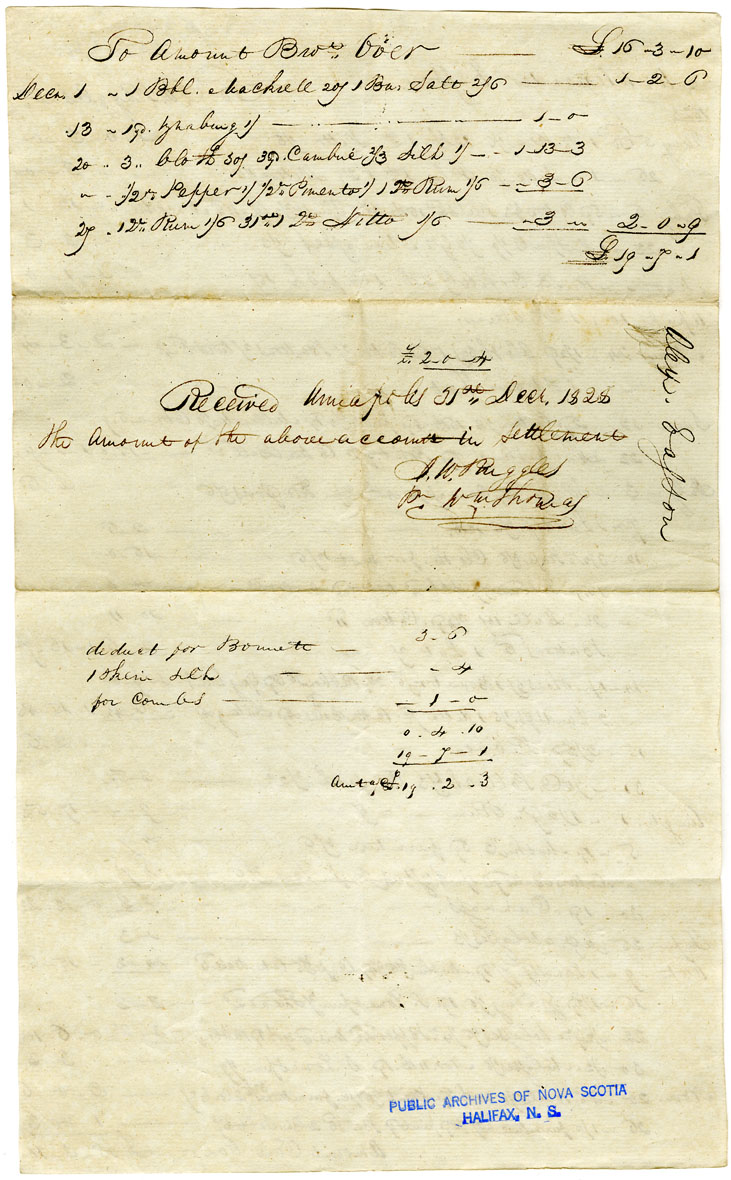 To Amount Brot. Over — £ 16-3-10
Decr. 1 " 1 Bbl. Mackrell 20/ 1 Bus. Salt 2/6 — 1-2-6
13 " 1 yd. 1/ — 1-0
20 " 3 " 3 yd. Cambric 3/3 Silk 1/ - 1-13-3
" - 1/2 lb Pepper 1/ 1/2 lb Pimento 1/ 1 Rum 1/6 - 3-6
27 " 1 Rum 1/6 31st 1 Ditto 1/6 — 3 - " 2-0-9
£ 19-7-1
2-0-4
Received Annapolis 31st Decr. 1828
the Amount of the above account in Settlement
J. W. Ruggles
Pr Wm. Thomas
Alexr.
deduct for Bonnett — 3-6
1 Skein Silk — - 4
for Combs — - 1-0
0.4.10
19-7-1
Amt £19.2-3
PUBLIC ARCHIVES OF NOVA SCOTIA
HALIFAX, N. S.